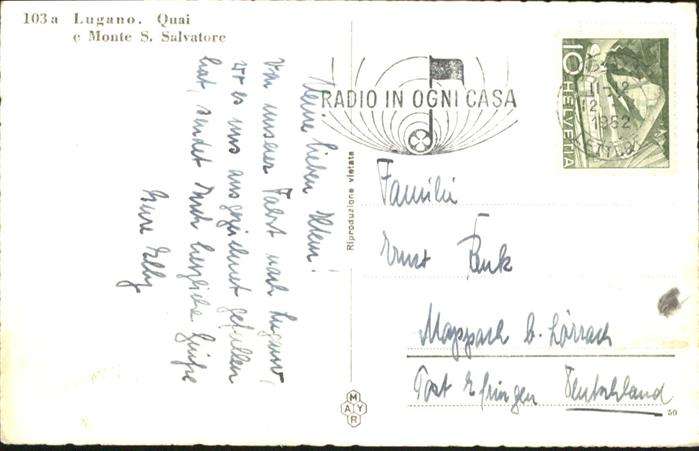 103a Lugano. Quai
e Monte S. Salvatore
Meine lieben Eltern!
Von unserer Fahrt nach Lugano,
wo es uns ausgezeichnet gefallen
hat, sendet Euch herzliche Grüße
Eure Elly
Riproduzione vietata
RADIO IN OGNI CASA
10 HELVETIA
11-12
1952
Familie
Ernst Senk
Mappach b. Lörrach
Post Efringen Deutschland
MAYR
50